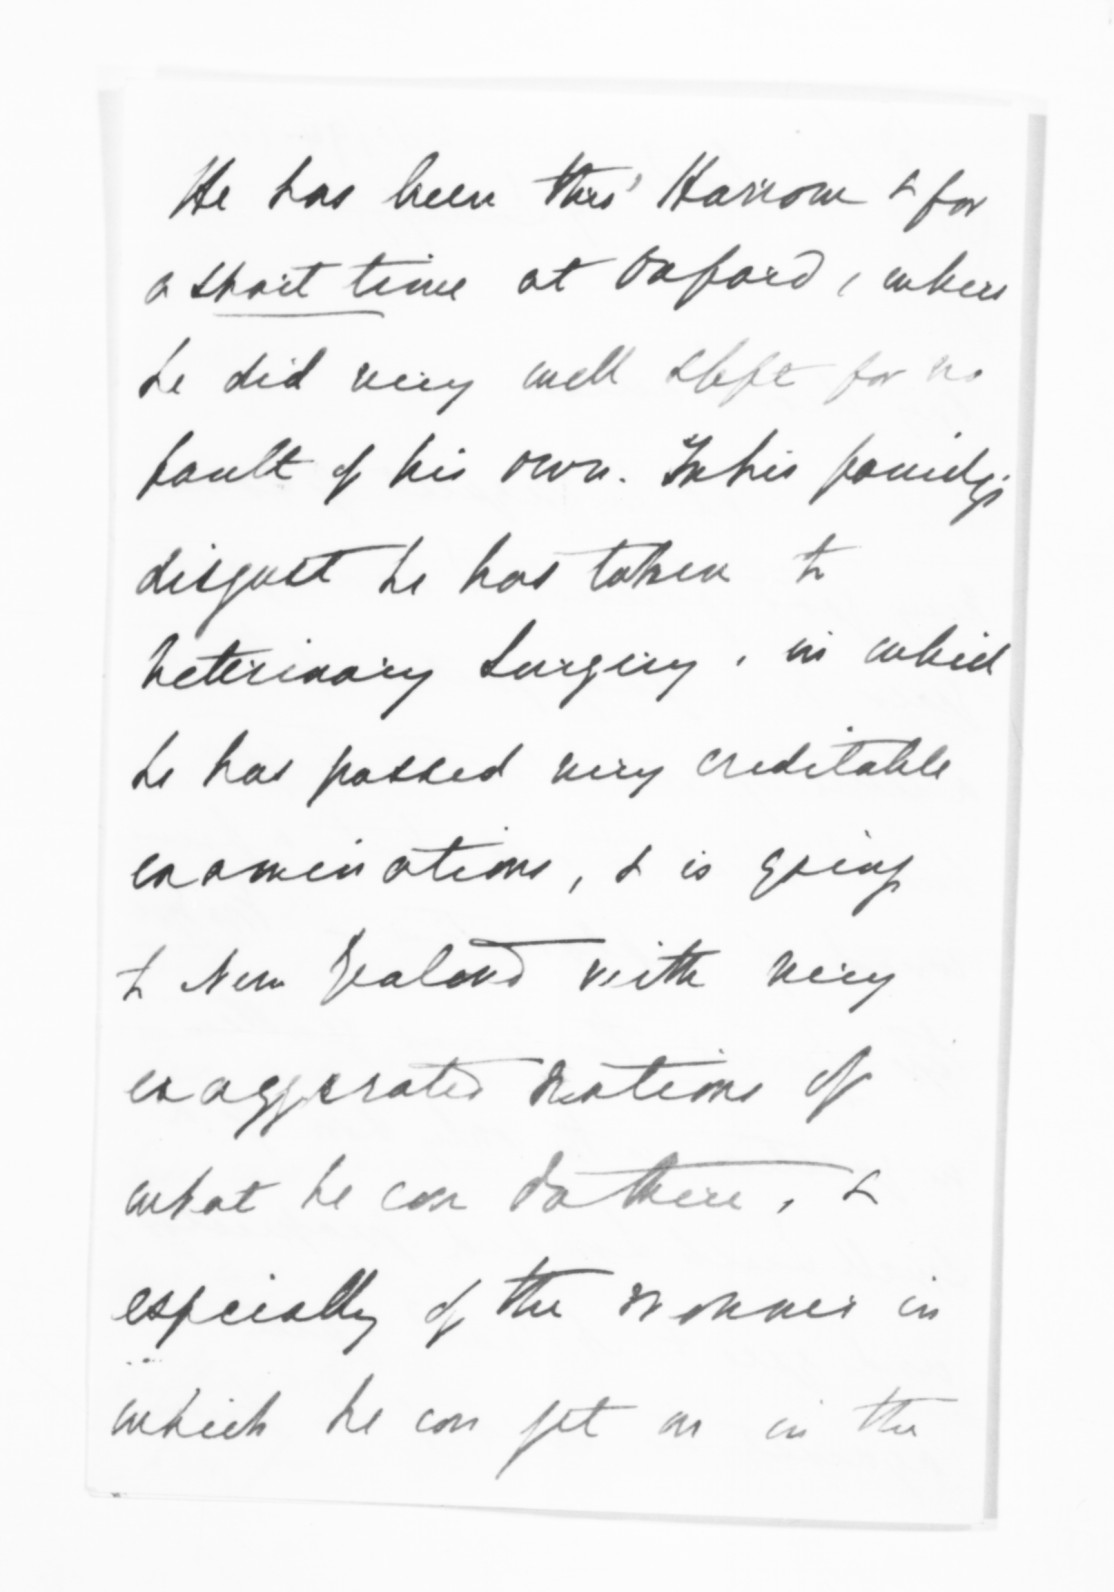 He has been thro' Harrow & for
a short time at Oxford, where
he did very well & left for no
fault of his own. To his family's
disgust he has taken to
Veterinary Surgery, in which
he has passed very creditable
examinations, & is going
to New Zealand with very
exaggerated notions of
what he can do there, &
especially of the manner in
which he can get on in the